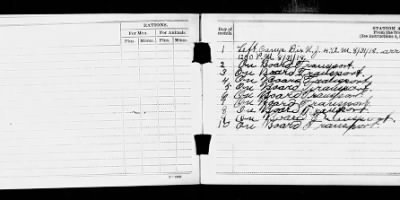 RATIONS.
For Men. For Animals.
Plus. Minus. Plus. Minus.
Day of month.
STATION A
From the fir
(See instructions 4,
1 Left Camp Dix N.J. 4 A.M. 8/31/18. arr
1200 P.M. 8/31/18.
2 On Board Transport.
3 On Board Transport.
4 On Board Transport.
5 On Board Transport.
6 On Board Transport.
7 On Board Transport.
8 On Board Transport.
9 On Board Transport.
10 On Board Transport.